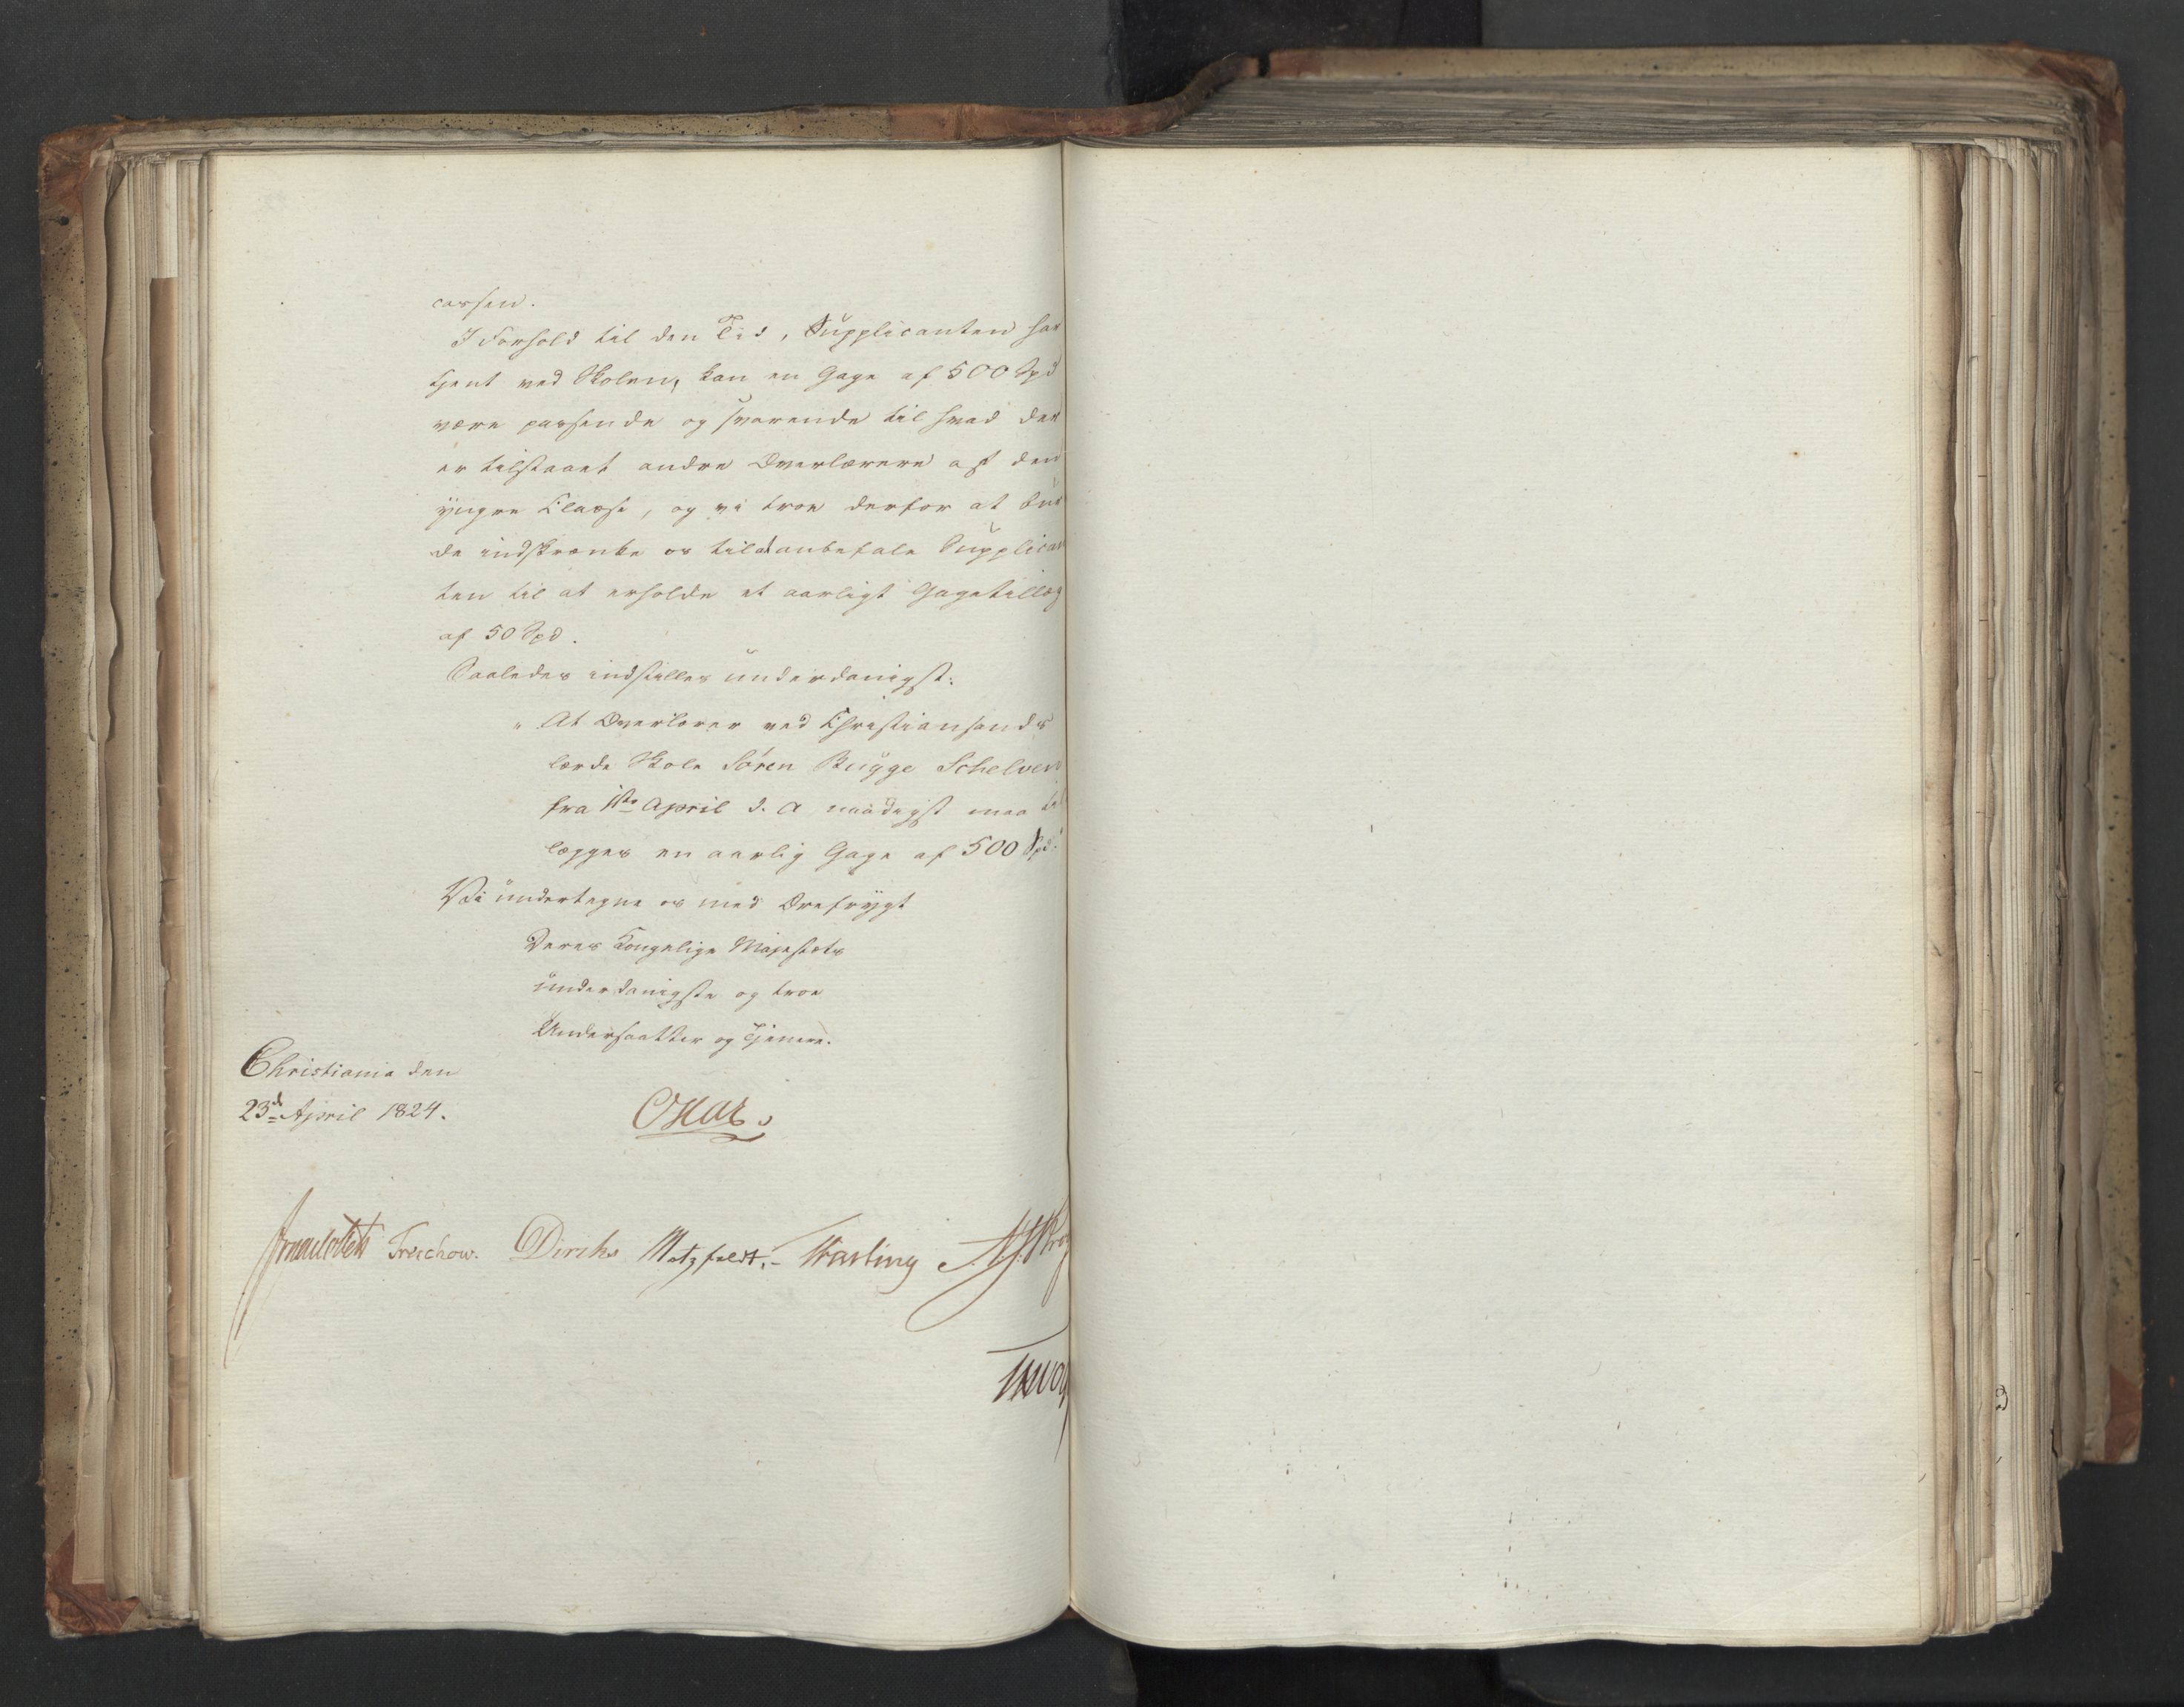 cassen.
I Forhold til den Tid, Supplicanten har
tjent ved Skolen, kan en Gage af 500 Spd
være passende og svarende til hvad der
er tilstaaet andre Overlærere af den
yngre Classe, og vi troe derfor at bur
de indskrænke os til at anbefale Supplican
ten til at erholde et aarligt Gagetillæg
af 50 Spd.
Saaledes indstilles underdanigst:
" At Overlærer ved Christiansands
lærde Skole Sören Bugge Schelven
fra 1ste April d. A naadigst maa til
lægges en aarlig Gage af 500 Spd."
Vi undertegne os med Ærefrygt
Deres Kongelige Majestæts
underdanigste og troe
Undersaatter og Tjenere.
Christiania den
23de April 1824.
Oscar.
Treschow. Diriks Motzfeldt. Fasting